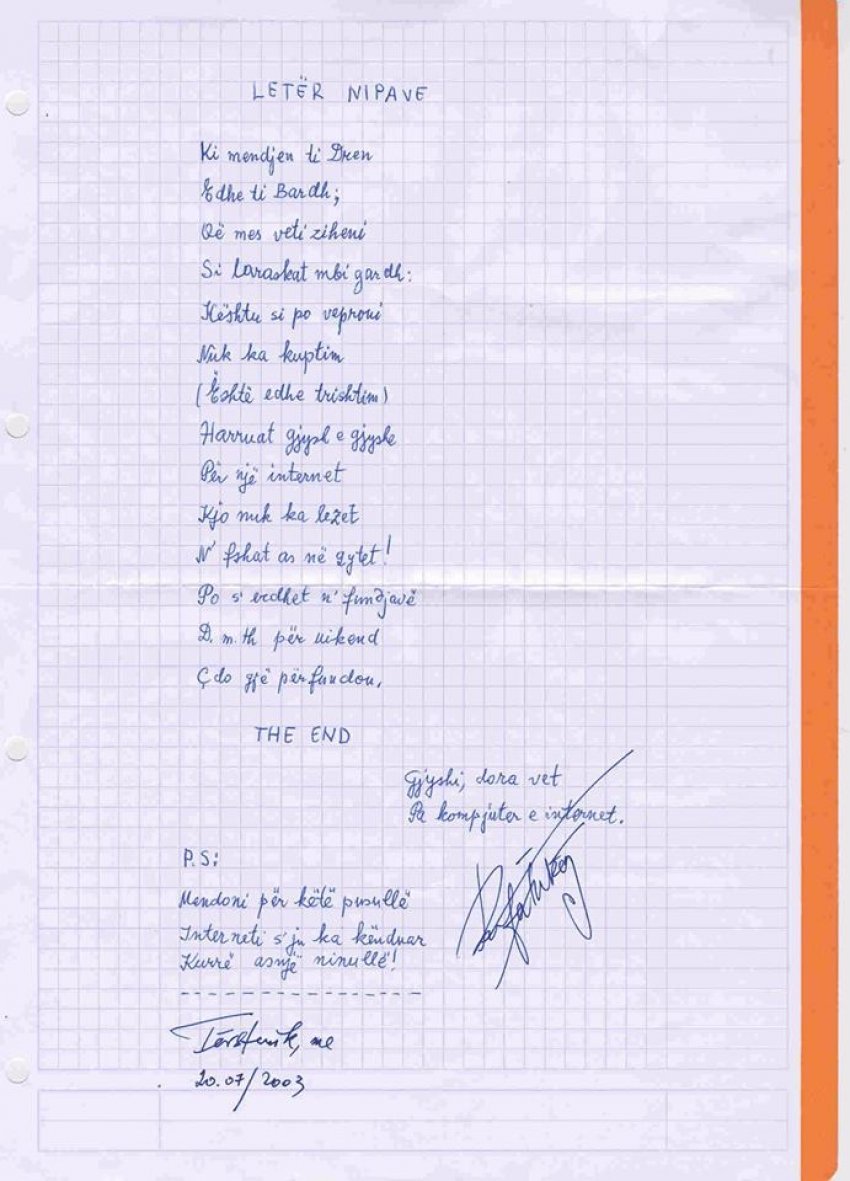 LETËR NIPAVE
Ki mendjen ti Dren
Edhe ti Bardh;
Që mes veti ziheni
Si laraskat mbi gardh:
Kështu si po veproni
Nuk ka kuptim
(Është edhe trishtim)
Harruat gjysh e gjyshe
Për një internet
Kjo nuk ka lezet
N' fshat as në qytet!
Po s' erdhet n' fundjavë
D. m. th për uikend
Çdo gjë përfundon.
THE END
Gjyshi, dora vet
Pa kompjuter e internet.
P.S:
Mendoni për këtë pusullë
Interneti s'ju ka kënduar
Kurrë asnjë ninullë!
Tërstenik, me
20.07/2003